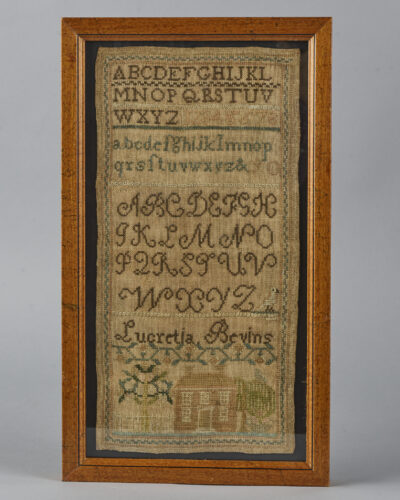 ABCDEFGHIJKL
MNOPQRSTUV
WXYZ
abcdefghijklmnop
qrsſtuvwxyz&
ABCDEFGH
IKLMNO
PQRSTUV
WXYZ
Lucretia Bevins